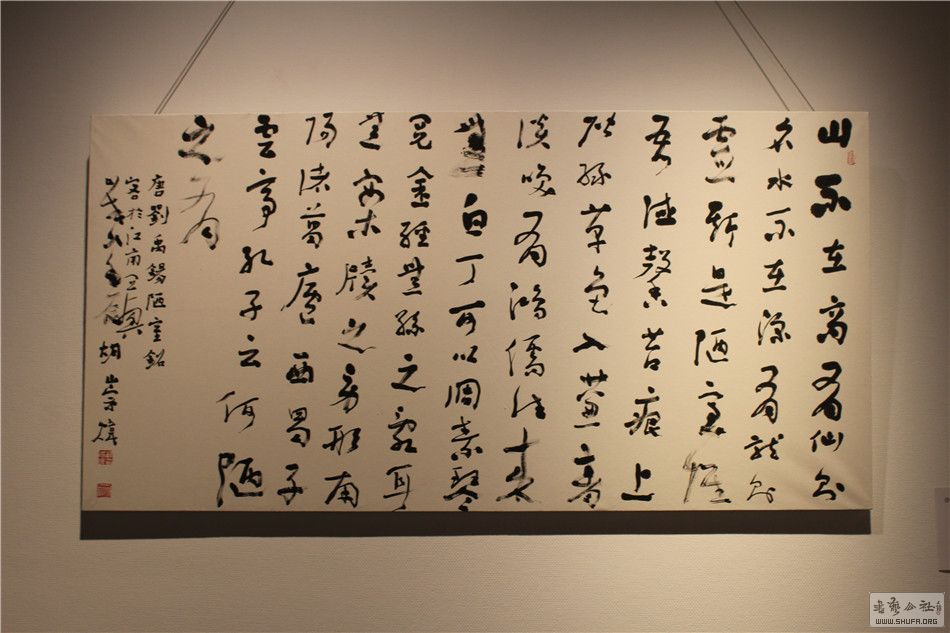 山不在高有仙則
名水不在深有龍則
靈斯是陋室惟
吾德馨苔痕上
階綠草色入簾青
談笑有鴻儒往來
無白丁可以調素琴
閱金經無絲之亂耳
無案牘之勞形南
陽諸葛廬西蜀子
雲亭孔子云何陋
之有
唐劉禹錫陋室銘
客於江南
胡崇煒
書藝公社
WWW.SHUFA.ORG